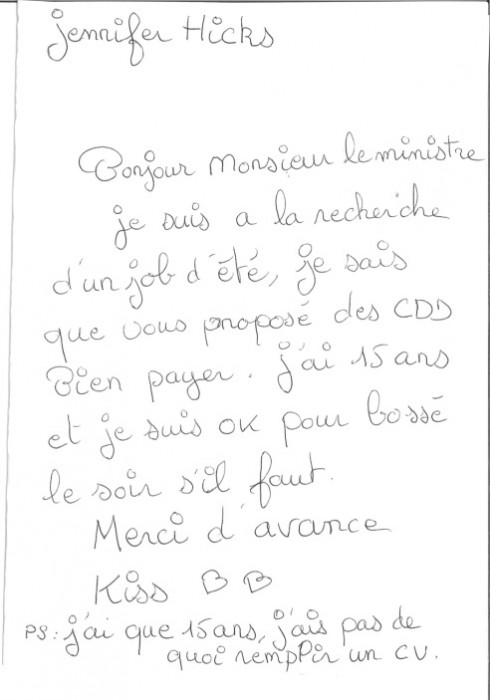 jennifer Hicks
Bonjour Monsieur le ministre
je suis a la recherche
d'un job d'été, je sais
que vous proposé des CDD
Bien payer. j'ai 15 ans
et je suis ok pour bossé
le soir s'il faut.
Merci d'avance
Kiss B B
PS: j'ai que 15 ans, j'ais pas de
quoi rempPir un CV.